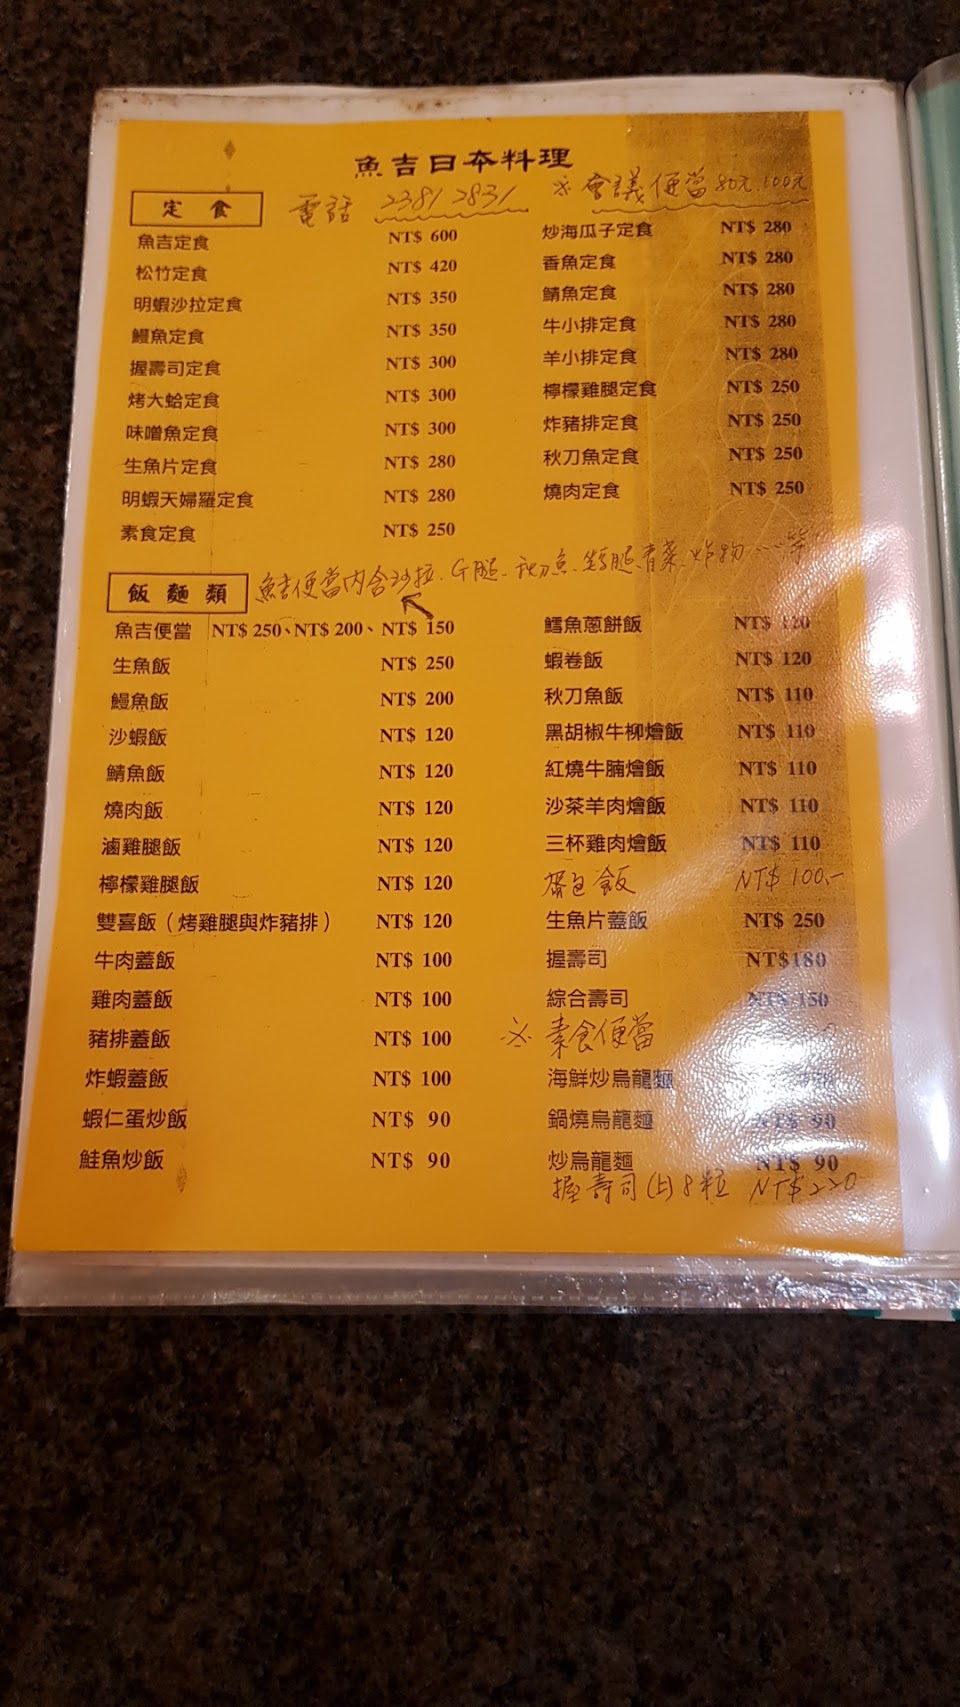 魚吉日本料理
電話 2381 2831
※會議便當80元.100元
定食
魚吉定食 NT$ 600
松竹定食 NT$ 420
明蝦沙拉定食 NT$ 350
鰻魚定食 NT$ 350
握壽司定食 NT$ 300
烤大蛤定食 NT$ 300
味噌魚定食 NT$ 300
生魚片定食 NT$ 280
明蝦天婦羅定食 NT$ 280
素食定食 NT$ 250
炒海瓜子定食 NT$ 280
香魚定食 NT$ 280
鯖魚定食 NT$ 280
牛小排定食 NT$ 280
羊小排定食 NT$ 280
檸檬雞腿定食 NT$ 250
炸豬排定食 NT$ 250
秋刀魚定食 NT$ 250
燒肉定食 NT$ 250
飯麵類
魚吉便當內含沙拉、G腿、青菜、炸物……等
魚吉便當 NT$ 250、NT$ 200、NT$ 150
生魚飯 NT$ 250
鰻魚飯 NT$ 200
沙蝦飯 NT$ 120
鯖魚飯 NT$ 120
燒肉飯 NT$ 120
滷雞腿飯 NT$ 120
檸檬雞腿飯 NT$ 120
雙喜飯（烤雞腿與炸豬排） NT$ 120
牛肉蓋飯 NT$ 100
雞肉蓋飯 NT$ 100
豬排蓋飯 NT$ 100
炸蝦蓋飯 NT$ 100
蝦仁蛋炒飯 NT$ 90
鮭魚炒飯 NT$ 90
鱈魚蔥餅飯 NT$ 120
蝦卷飯 NT$ 120
秋刀魚飯 NT$ 110
黑胡椒牛柳燴飯 NT$ 110
紅燒牛腩燴飯 NT$ 110
沙茶羊肉燴飯 NT$ 110
三杯雞肉燴飯 NT$ 110
包飯 NT$ 100.-
生魚片蓋飯 NT$ 250
握壽司 NT$180
綜合壽司 NT$ 150
※素食便當
海鮮炒烏龍麵
鍋燒烏龍麵 NT$ 90
炒烏龍麵 NT$ 90
握壽司(上)8粒 NT$220